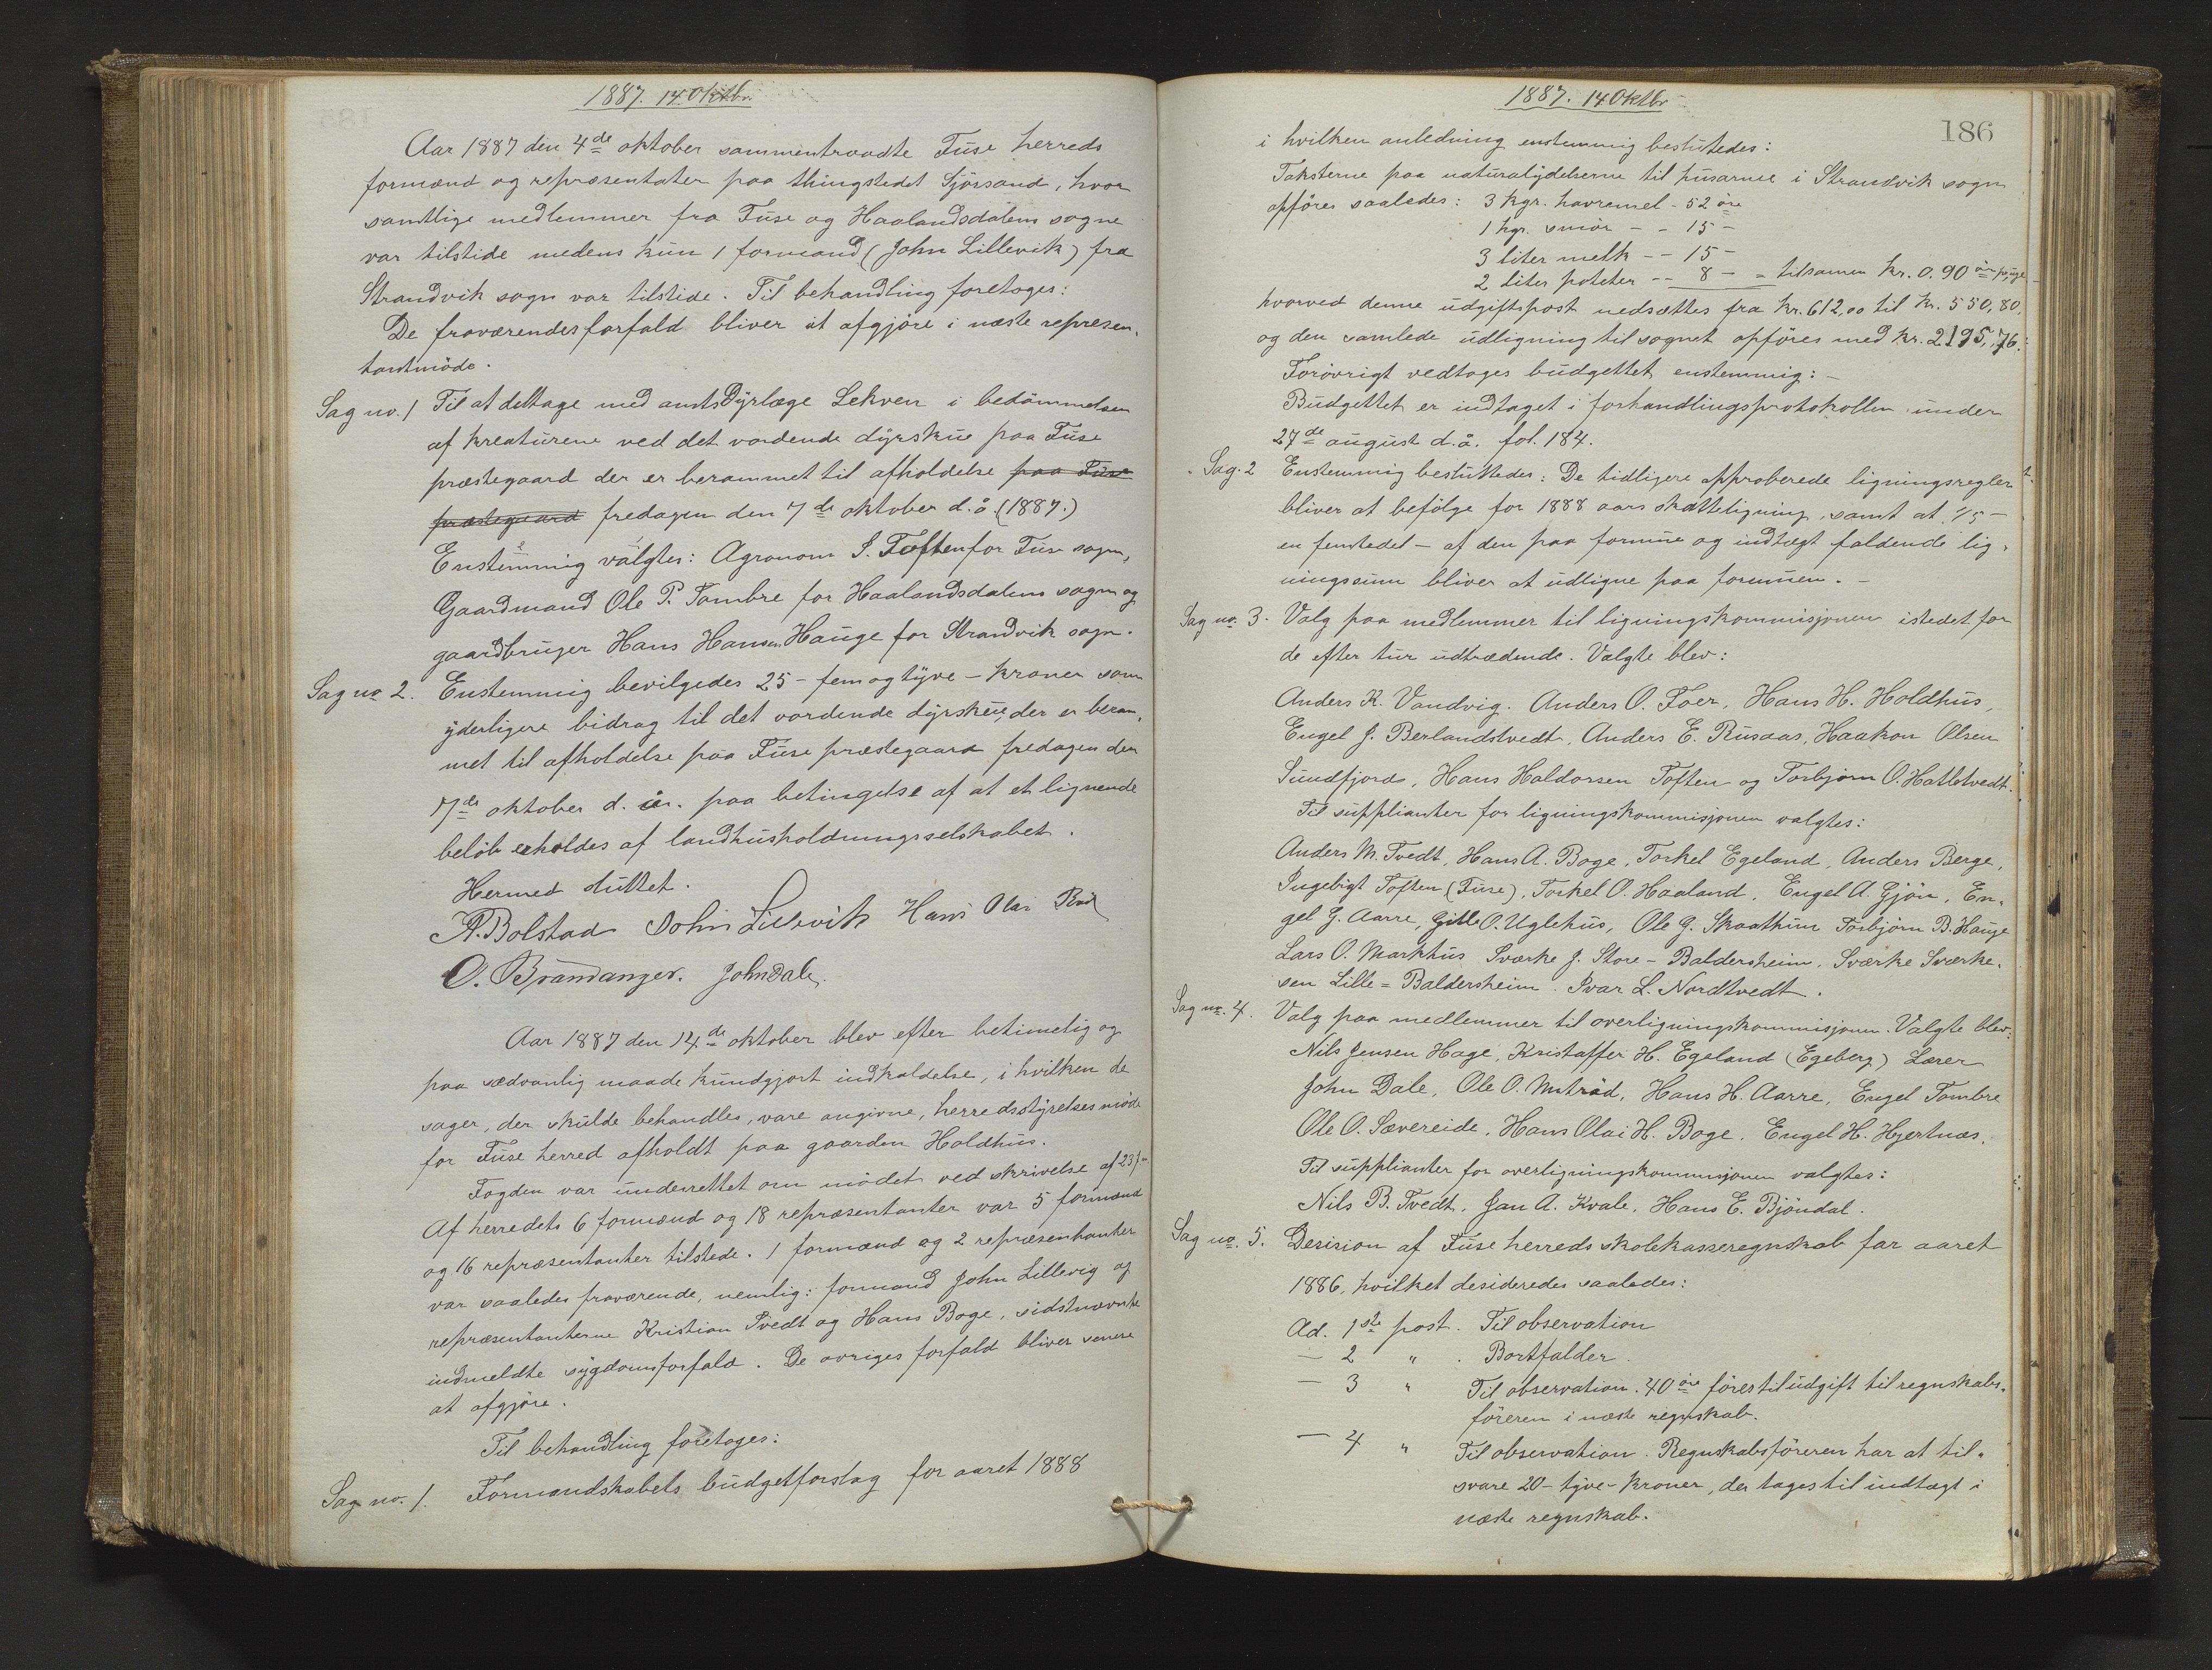 1887. 14 Oktbr.
Aar 1887 den 4de oktober sammentraadte Fuse herreds
formænd og repræsentater paa thingstedet Sjörsand, hvor
samtlige medlemmer fra Fuse og Haalandsdalens sogne
var tilstide medens kun 1 formand (John Lillevik) fra
Strandvik sogn var tilstide. Til behandling foretoges:
De fraværendes forfald bliver at afgjöre i næste represen-
tantmöde.
Sag no. 1 Til at deltage med amtsDyrlæge Lekven i bedömmelsen
af kreaturene ved det vordende dyrskue paa Fuse
præstegaard der er berammet til afholdelse paa Fuse
præstegaard fredagen den 7de oktober d.å. (1887.)
Enstemmig valgtes: Agronom I. Toften for Fuse sogn,
Gaardmand Ole P. Tombre for Haalandsdalens sogn og
gaardbruger Hans Hansen Hauge for Strandvik sogn.
Sag no 2. Enstemmig bevilgedes 25 - fem og tyve - kroner som
yderligere bidrag til det vordende dyrskue, der er beram-
met til afholdelse paa Fuse præstegaard fredagen den
7de oktober d. år. paa betingelse af at et lignende
beløb erholdes af landhusholdningsselskabet.
Hermed sluttet.
A. Bolstad John Lillevik Hans Olai
O. Brandanger. John Dale.
Aar 1887 den 14de oktober blev efter betimelig og
paa sædvanlig maade kundgjort indkaldelse, i hvilken de
sager, der skulde behandles, vare angivne, herredsstyrelsesmöde
for Fuse herred afholdt paa gaarden Holdhus.
Fogden var underrettet om mödet ved skrivelse af 23/
Af herredets 6 formænd og 18 repræsentanter var 5 formænd
og 16 repræsentanter tilstede. 1 formænd og 2 repræsentanter
var saaledes fraværende, nemlig: formand John Lillevig og
repræsentanterne Kristian Tvedt og Hans Boge, sidstnævnte
indmeldte sygdomsforfald. De øvriges forfald bliver senere
at afgjøre.
Til behandling foretoges:
Sag no. 1. Formandskabets budgetforslag for aaret 1888
1887. 14 Oktbr
186
i hvilken anledning enstemmig beslutedes:
Taksterne paa naturalydelserne til husarme i Strandvik sogn
opføres saaledes: 3 kgr. havremel - 52 öre
1 kgr. smör - - 15 -
3 liter melk - - 15 -
2 liter poteter - - 8 - = tilsamen kr. 0.90 öre
hvorved denne udgiftspost nedsættes fra kr. 612,00 til kr. 550,80,
og den samlede udligning til sognet opföres med kr. 2195,76.
Forövrigt vedtoges budgettet enstemmig: -
Budgettet er indtaget i forhandlingsprotokollen under
27de august d.å. fol. 184.
Sag. 2 Enstemmig besluttedes: De tidligere approberede ligningsregler
bliver at befölge for 1888 aars skatteligning, samt at 1/5 -
en femtedel - af den paa formue og indtægt faldende lig-
ningssum bliver at udligne paa formuen. -
Sag no. 3. Valg paa medlemmer til ligningskommisjonen istedet for
de efter tur udtrædende. Valgte blev:
Anders K. Vandvig. Anders O. Foer, Hans H. Holdhus,
Engel J. Berlandstvedt, Anders E. Rusaas, Haakon Olsen
Sundfjord, Hans Haldorsen Toften og Torbjörn O. Hatletvedt.
Til supplianter for ligningskommisjonen valgtes:
Anders M. Tvedt, Hans A. Boge, Torkel Egeland, Anders Berge,
Ingebigt Toften (Fuse), Torkel O. Haaland, Engel A. Gjön, En-
gel G. Aarre, Gitle O. Uglehus, Ole G. Skaathun Torbjörn B. Hauge
Lars O. Markhus Sværke J. Store - Baldersheim, Sværke Sværke-
sen Lille = Baldersheim. Ivar L. Nordtvedt.
Sag no. 4. Valg paa medlemmer til overligningskommisjonen. Valgte blev:
Nils Jensen Hage, Kristoffer H. Egeland (Egeberg) Lærer
John Dale, Ole O. Mitråd, Hans H. Aarre, Engel Tombre
Ole O. Sævereide, Hans Olai H. Boge. Engel H. Hjertnæs.
Til supplianter for overligningskommisjonen valgtes:
Nils B. Tvedt, Jan A. Kvale, Hans E. Bjöndal.
Sag no. 5. Desision af Fuse herreds skolekasseregnskab for aaret
1886, hvilket desideredes saaledes:
Ad. 1ste post. Til observation
- 2 " . Bortfalder.
- 3 " Til observation. 40 öre föres til udgift til regnskabs-
föreren i næste regnskab.
- 4 " Til observation. Regnskabsföreren har at til-
svare 20 - tyve - kroner, der tages til indtægt i
næste regnskab.